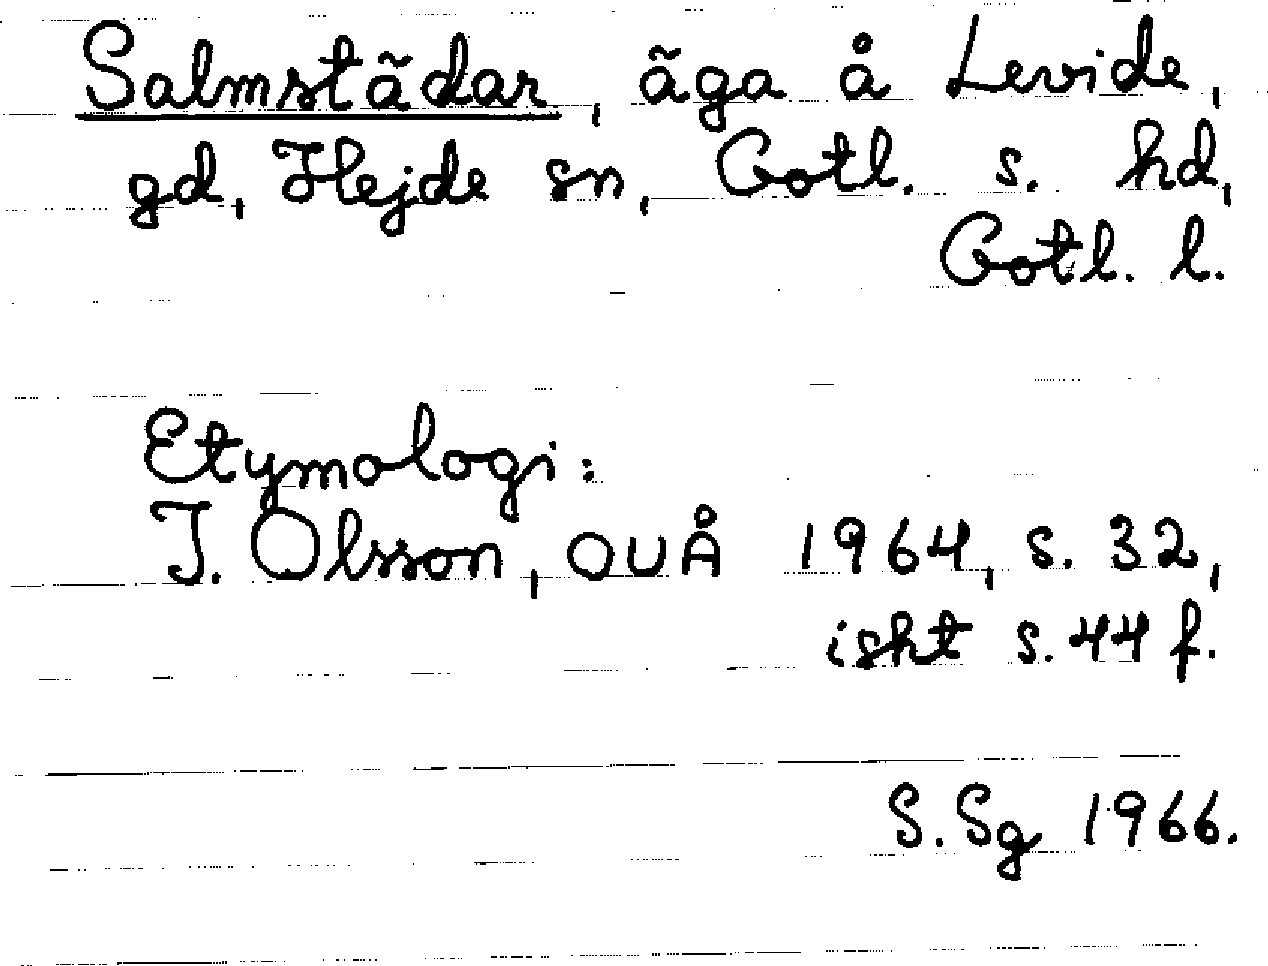 Salmstädar, äga å Levide,
gd, Hejde sn, Gotl. s. hd,
Gotl. l.
Etymologi:
I. Olsson, OUÅ 1964, s. 32,
isht s. 44 f.
S. Sg 1966.